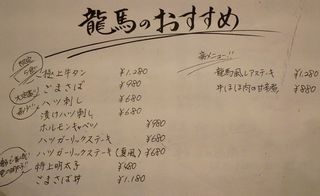 龍馬のおすすめ
極上牛タン ¥1,280
ごまさば ¥980
ハツ刺し ¥680
漬けハツ刺し ¥680
ホルモンキャベツ ¥980
ハツガーリックステーキ ¥680
ハツガーリックステーキ(夏風) ¥680
特上明太子 ¥480
ごまさば丼 ¥1,180
新メニュー!!
龍馬風レアステーキ ¥1,280
牛ほほ肉の甘辛煮 ¥880